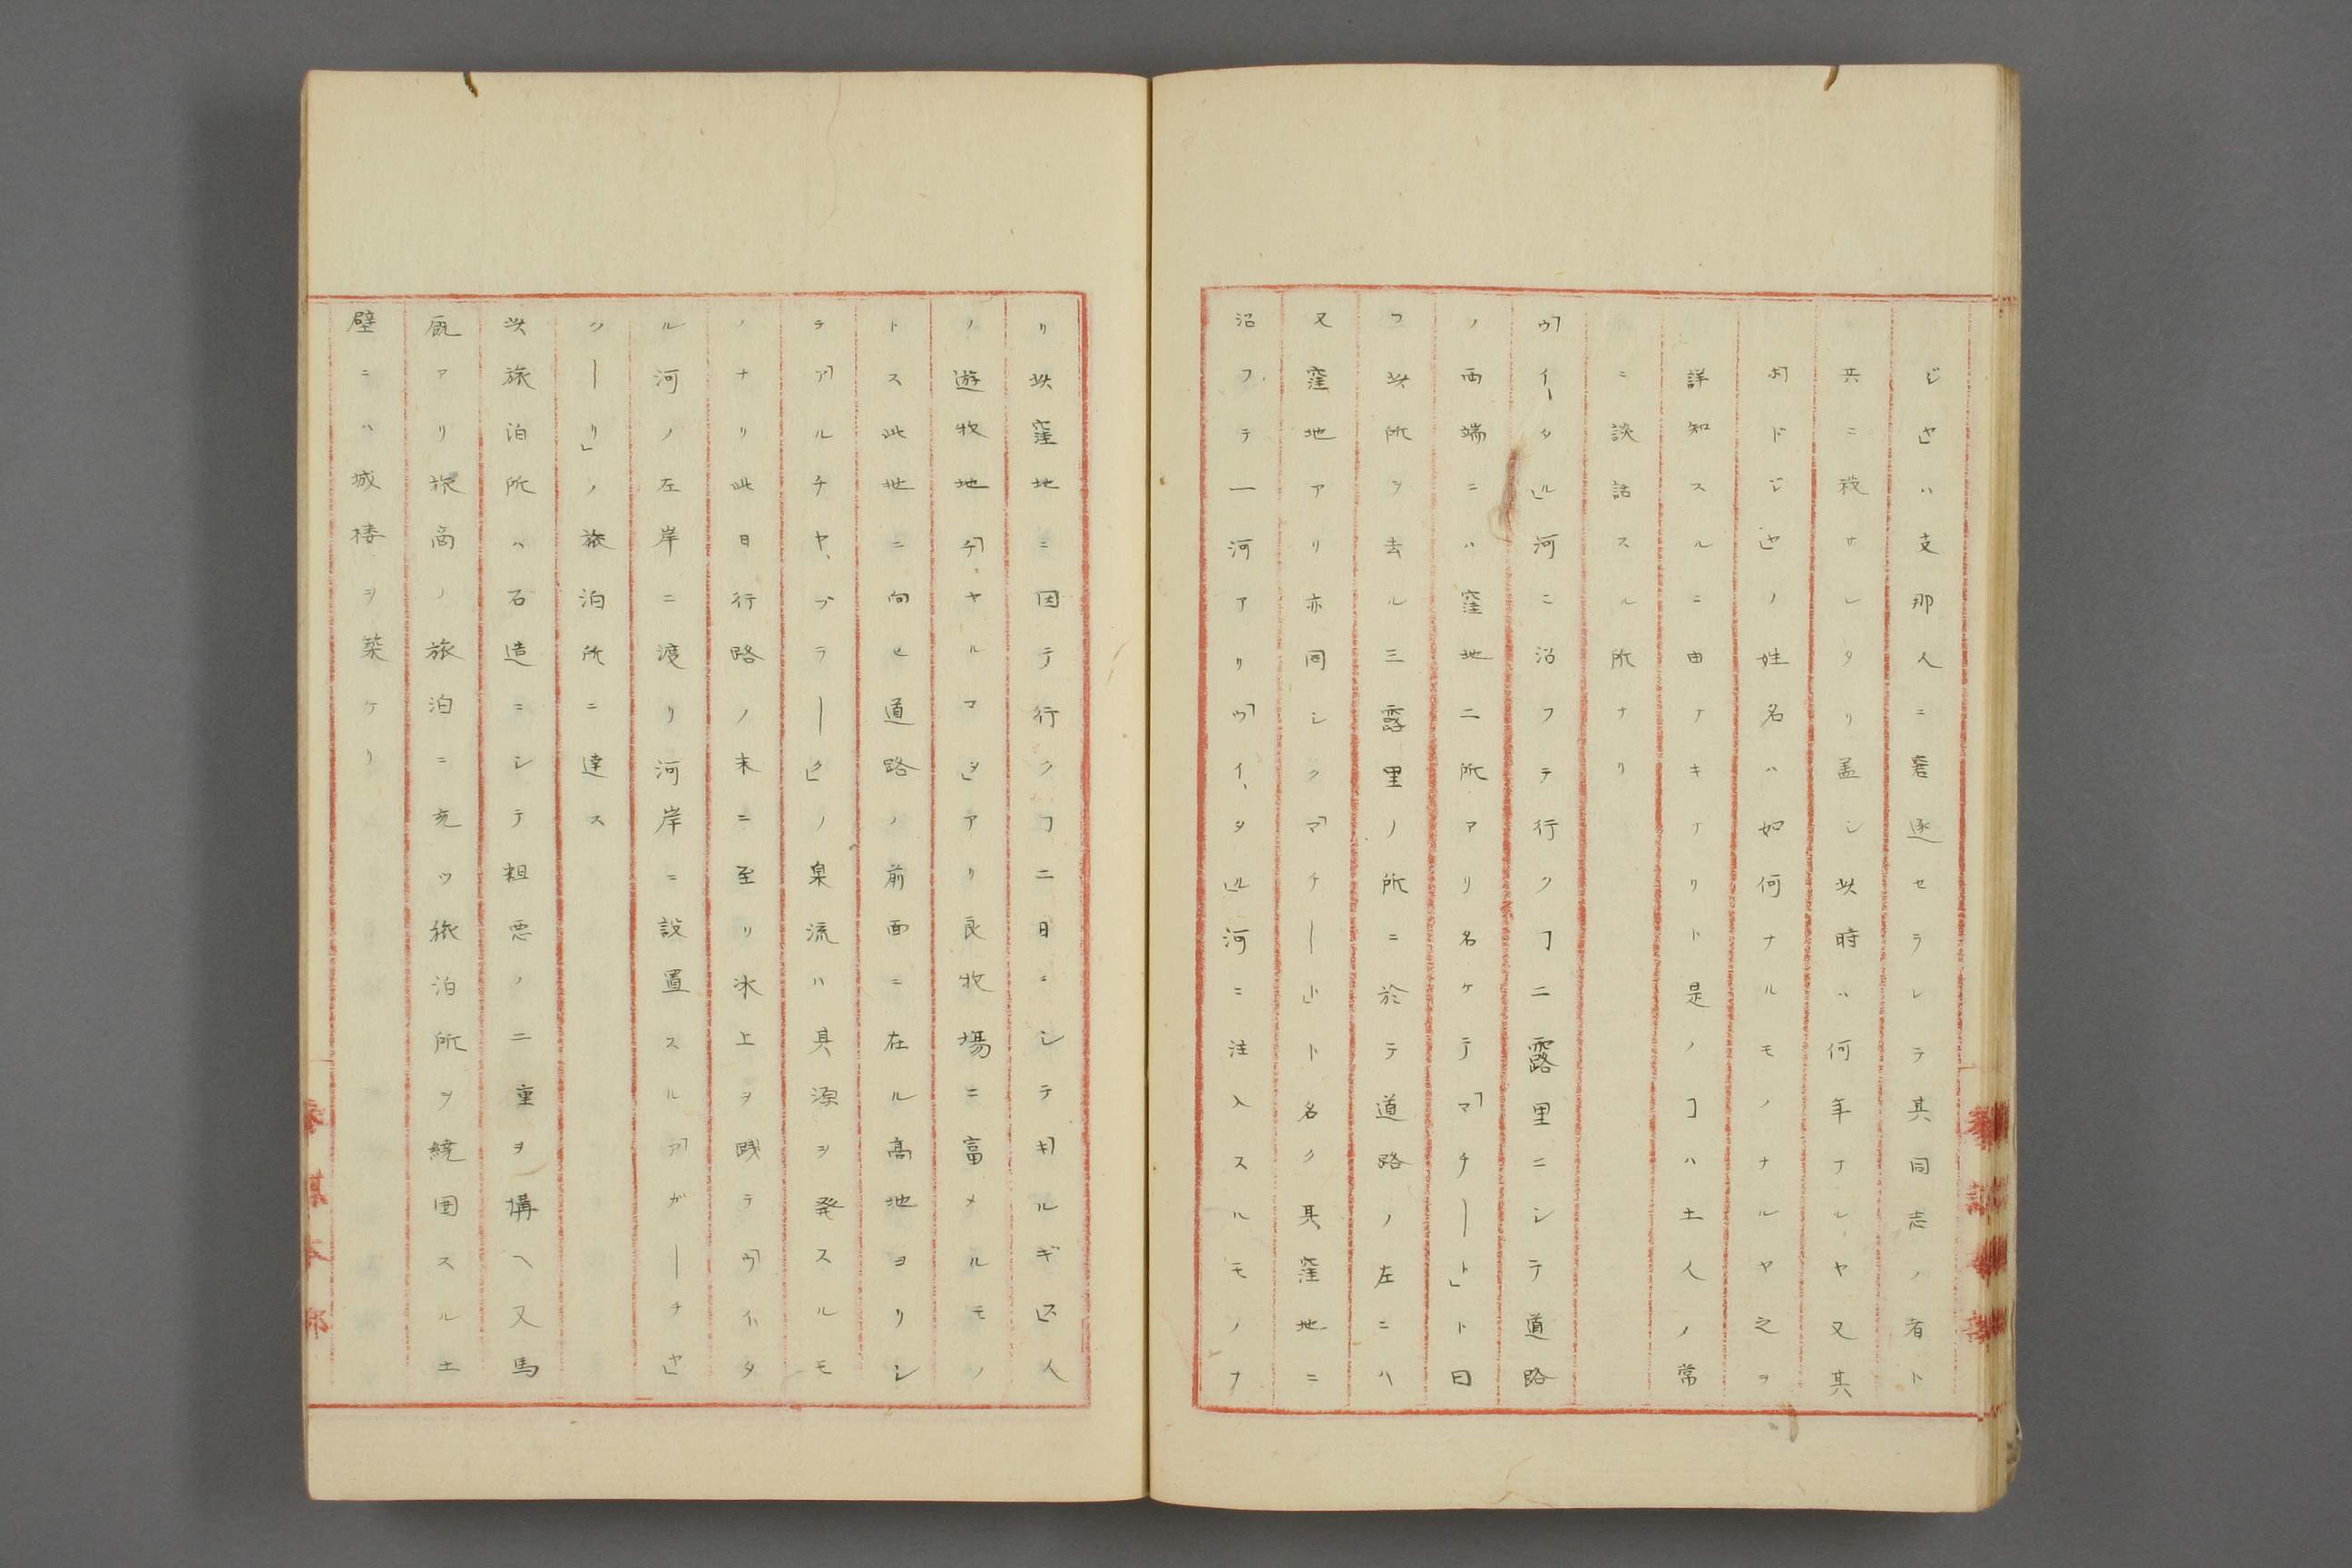 ジャ」ハ支那人ニ窘逐セラレテ其同志ノ者ト
共ニ殺サレタリ蓋シ此時ハ何年ナルヤ又其
「ホドジャ」ノ姓名ハ如何ナルモノナルヤ之ヲ
詳知スルニ由ナキナリト是ノヿハ土人ノ常
ニ談話スル所ナリ
「ウイータル」河ニ沿フテ行クヿ二露里ニシテ道路
ノ両端ニハ窪地二所アリ名ケテ「マチート」ト曰
フ此所ヲ去ル三露里ノ所ニ於テ道路ノ左ニハ
又窪地アリ亦同シク「マチート」ト名ク其窪地ニ
沿フテ一河アリ「ウイ、タル」河ニ注入スルモノナ
リ此窪地ニ因テ行クヿ二日ニシテ「キルギス」人
ノ遊牧地「チャルマタ」アリ良牧場ニ富メルモノ
トス此地ニ向ヒ道路ノ前面ニ在ル高地ヨリシ
テ「アルチヤ、ブラーク」ノ泉流ハ其源ヲ発スルモ
ノナリ此日行路ノ末ニ至リ氷上ヲ践テ「ウイ、タ
ル河ノ左岸ニ渡リ河岸ニ設置スル「アガーチャ」
ツーリ」ノ旅泊所ニ達ス
此旅泊所ハ石造ニシテ粗悪ノ二重ヲ構ヘ又馬
厩アリ旅商ノ旅泊ニ充ツ旅泊所ヲ繞囲スル土
壁ニハ城楼ヲ築ケリ